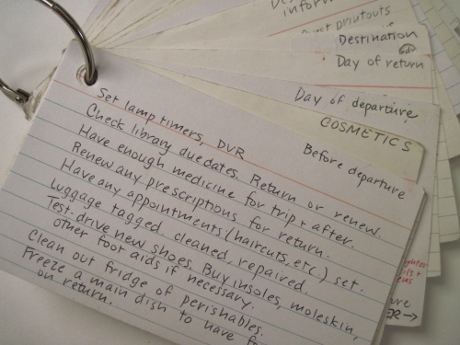 Information
Print printouts
Destination
Day of return
Day of departure
COSMETICS
Before departure
Set lamp timers, DVR
Check library due dates. Return or renew.
Have enough medicine for trip + after.
Renew any prescriptions for return.
Have any appointments (haircuts, etc.) set.
Luggage tagged, cleaned, repaired.
Test drive new shoes. Buy insoles, moleskin,
other foot aids if necessary.
Clean out fridge of perishables.
Freeze a main dish to have
on return.